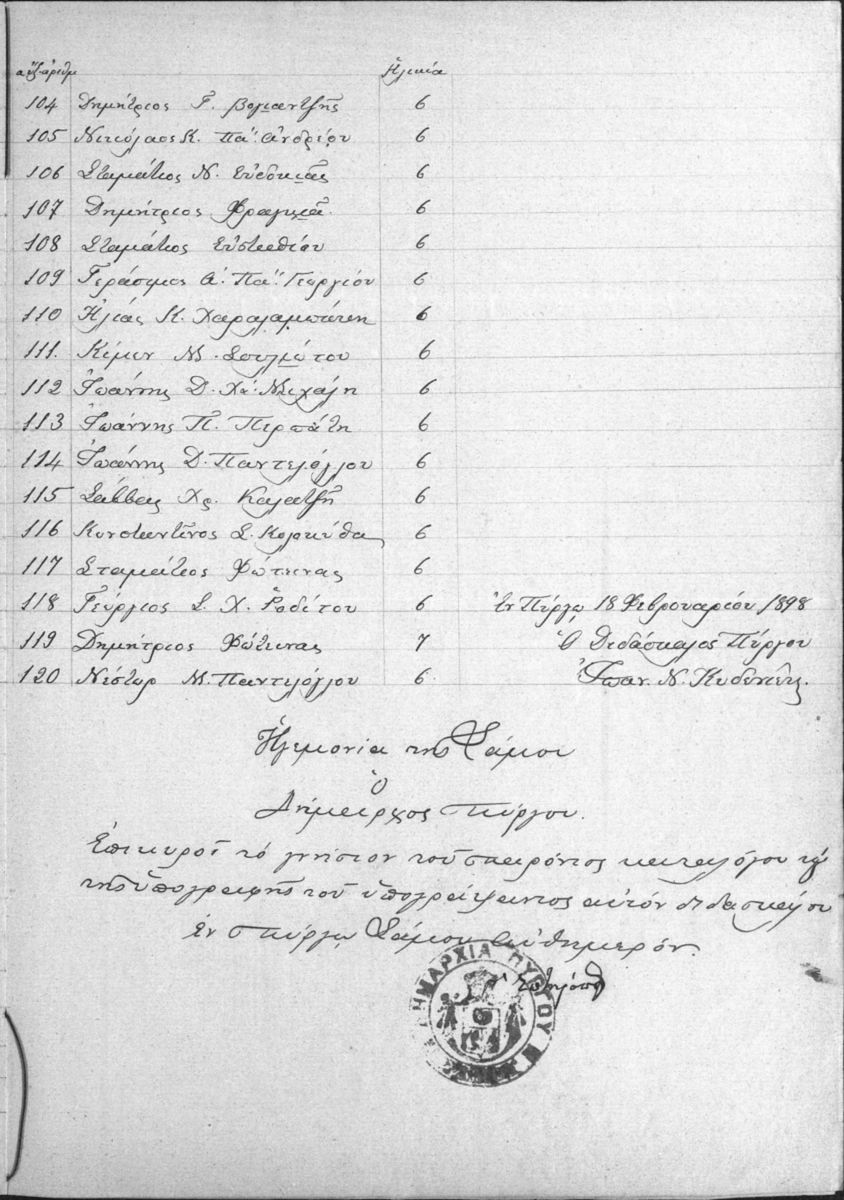 αὔξ. ἀριθμ Ἡλικία
104 Δημήτριος Γ. Βογιαντζῆς 6
105 Νικόλαος Κ. Πα: Ἀνδρέου 6
106 Σταμάτιος Ν. Εὐδοκιᾶς 6
107 Δημήτριος Φραγκιᾶ. 6
108 Σταμάτιος Εὐσταθίου 6
109 Γεράσιμος Α. Πα: Γεωργίου 6
110 Ἠλίας Κ. Χαραλαμπάκη 6
111. Κίμων Μ. 6
112 Ἰωάννης Δ. Χ: Μιχάλη 6
113 Ἰωάννης Π. Περπάτη 6
114 Ἰωάννης Δ. Παντελόγλου 6
115 Σάββας Χρ. Καλατζῆ 6
116 Κωνσταντῖνος Σ. Κολοκύθα 6
117 Σταμάτιος Φώτεινας 6
118 Γεώργιος Σ. Χ. Ῥοδίτου 6 Ἐν Πύργῳ 18 Φεβρουαρίου 1898
119 Δημήτριος Φώτεινας 7 Ὁ Διδάσκαλος Πύργου
120 Νέστωρ Μ. Παντελόγλου 6 Ἰωαν. Ν.
Ἡγεμονία τῆς Σάμου
Ὁ
Δήμαρχος Πύργου.
Ἐπικυροῖ τό γνήσιον τοῦ παρόντος καταλόγου καὶ
τῆς ὑπογραφῆς τοῦ ὑπογράψαντος αὐτόν διδασκάλου
Ἐν Πύργῳ Σάμου αὐθημερόν.
ΔΗΜΑΡΧΙΑ ΠΥΡΓΟΥ